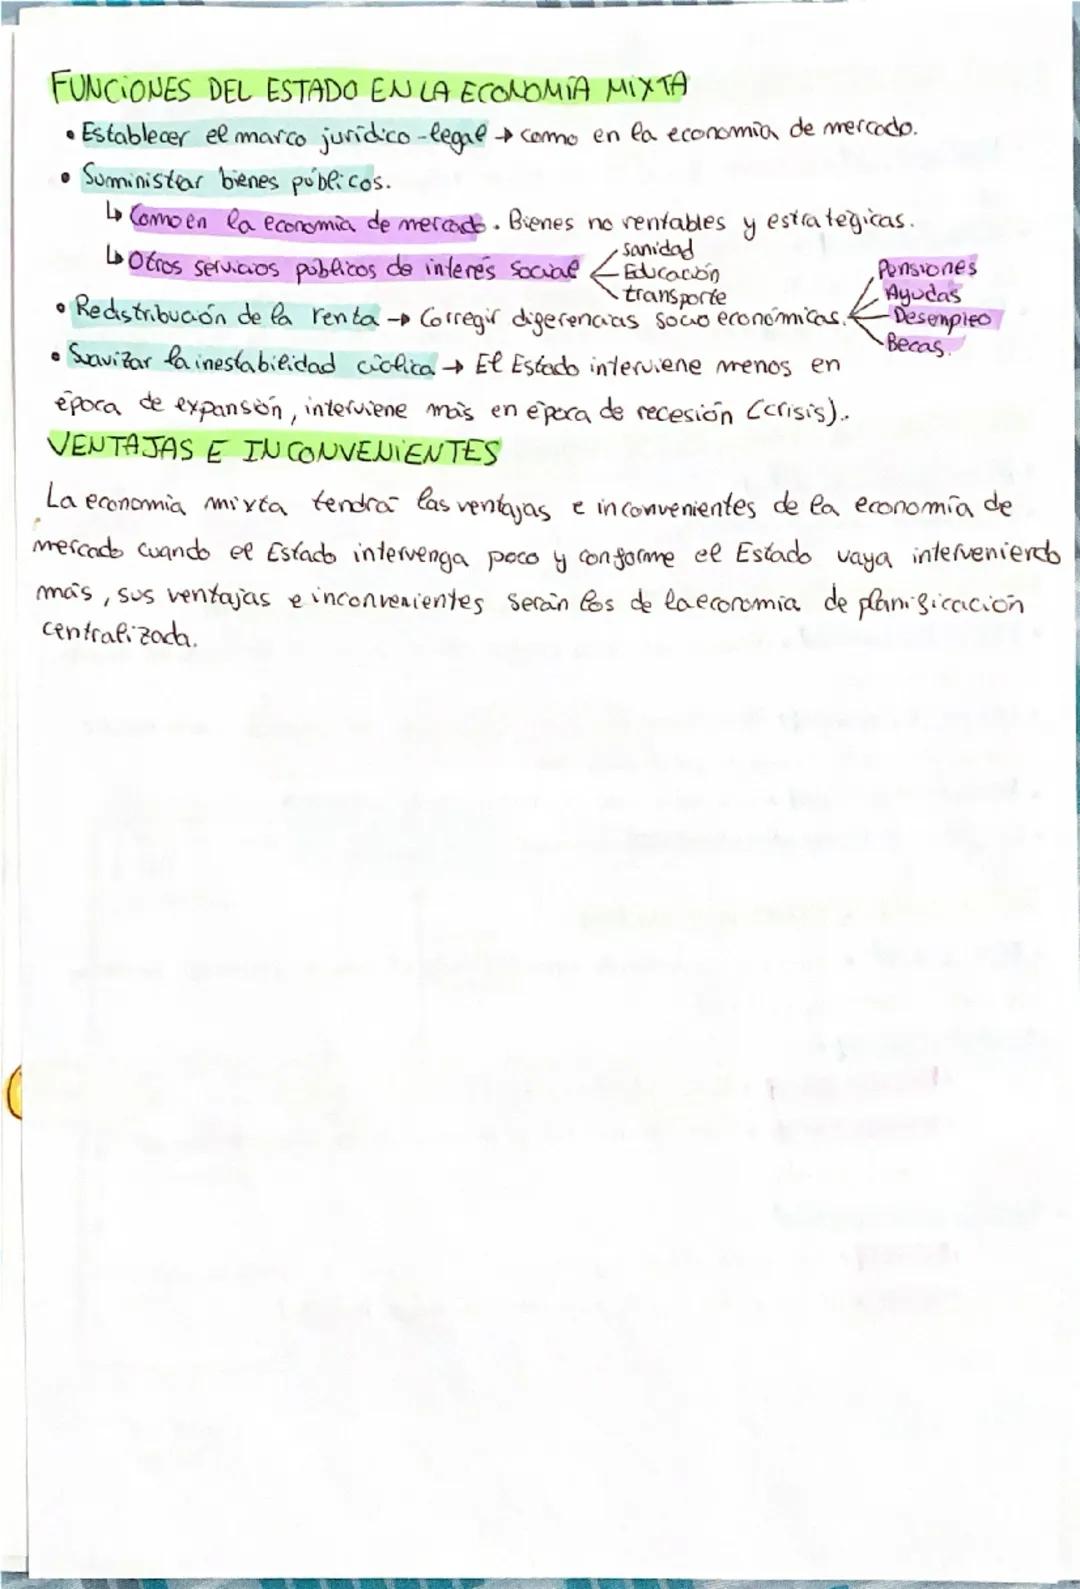 FUNCIONES DEL ESTADO EN LA ECONOMÍA MIXTA
• Establecer el marco jurídico-legal → como en la economía de mercado.
• Suministar bienes públicos.
↳ Como en la economía de mercado. Bienes no rentables y estrategicas.
↳ Otros servicios públicos de interés social
sanidad
Educación
transporte
• Redistribución de la renta → Corregir digerencias socio económicas.
Pensiones
Ayudas
Desempleo
Becas.
• Suavizar la inestabilidad cíclica → El Estado interviene menos en
época de expansión, interviene más en época de recesión (crisis)..
VENTAJAS E INCONVENIENTES
La economía mixta tendrá las ventajas e inconvenientes de la economía de
mercado cuando el Estado intervenga poco y conforme el Estado vaya interveniendo
más, sus ventajas e inconvenientes serán los de la economía de planigicación
centralizada.